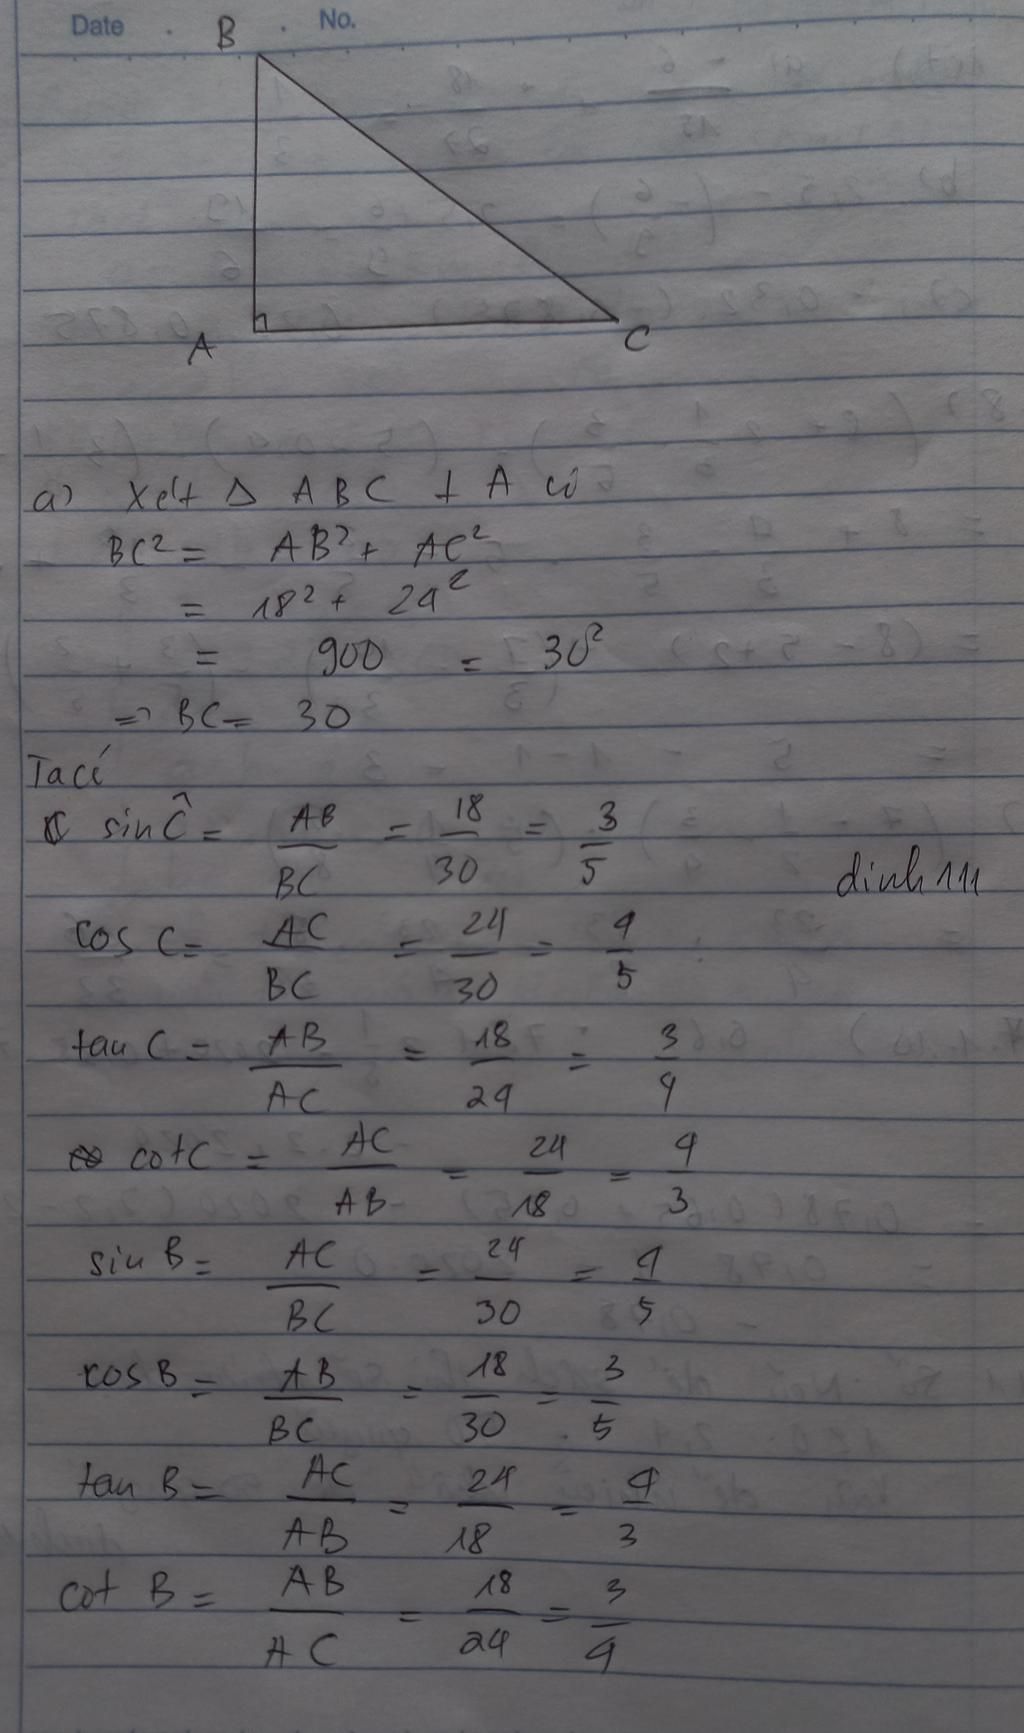 Date . . No.
B
A
C
a) Xét Δ ABC ⊥ A có
BC² = AB² + AC²
= 18² + 24²
= 900 = 30²
=> BC = 30
Ta có
sin Ĉ = AB/BC = 18/30 = 3/5
dinh 111
cos C = AC/BC = 24/30 = 4/5
tan C = AB/AC = 18/24 = 3/4
cot C = AC/AB = 24/18 = 4/3
sin B = AC/BC = 24/30 = 4/5
cos B = AB/BC = 18/30 = 3/5
tan B = AC/AB = 24/18 = 4/3
cot B = AB/AC = 18/24 = 3/4